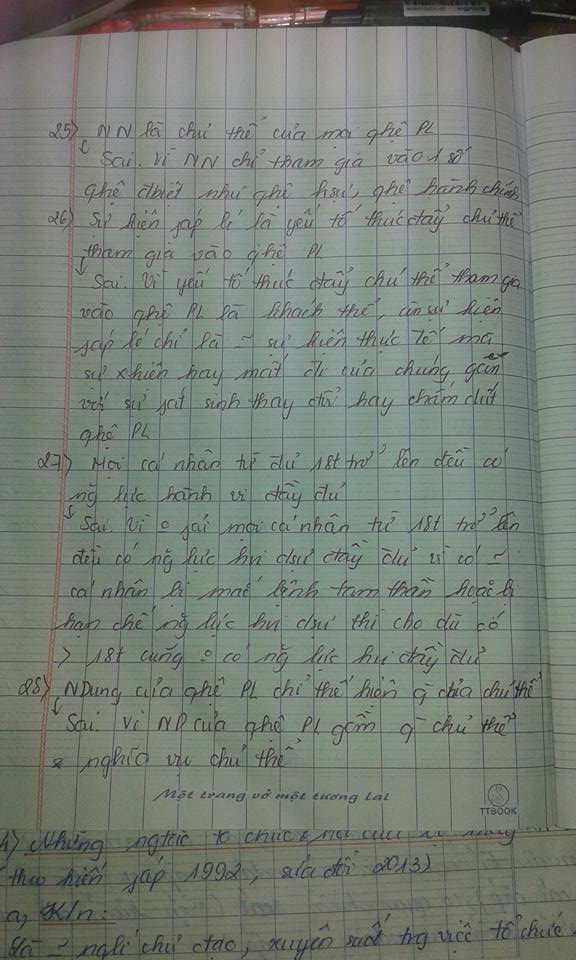 25) NN là chủ thể của mọi qhệ PL
Sai. Vì NN chỉ tham gia vào 1 số
qhệ đbiệt như qhệ hsự, qhệ hành chính
26) Sự kiện fáp lí là yếu tố thúc đẩy chủ thể
tham gia vào qhệ PL
Sai. Vì yếu tố thúc đẩy chủ thể tham gia
vào qhệ PL là khách thể, còn sự kiện
fáp lí chỉ là ~ sự kiện thực tế mà
sự x.hiện hay mất đi của chúng gắn
với sự fát sinh thay đổi hay chấm dứt
qhệ PL
27) Mọi cá nhân từ đủ 18t trở lên đều có
ng lực hành vi đầy đủ
Sai. Vì o fải mọi cá nhân từ 18t trở lên
đều có ng lực hvi dsự đầy đủ vì có ~
cá nhân bị mắc bệnh tâm thần hoặc bị
hạn chế ng lực hvi dsự thì cho dù có
> 18t cũng o có ng lực hvi đầy đủ
28) NDung của qhệ PL chỉ thể hiện q- của chủ thể
Sai. Vì ND của qhệ PL gồm q- chủ thể
& nghĩa vụ chủ thể
Một trang vở một tương lai
TTBOOK
4) Những ngtắc tổ chức &
theo hiến fáp 1992, sửa đổi 2013)
a, K/n:
Là ~ ng lí chỉ đạo, xuyên suốt trg việc tổ chức